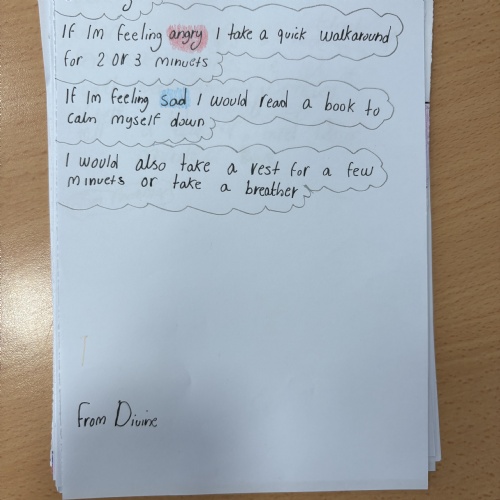 If Im feeling angry I take a quick walkaround
for 2 or 3 minuets
If Im feeling sad I would read a book to
calm myself down
I would also take a rest for a few
minuets or take a breather
From Divine